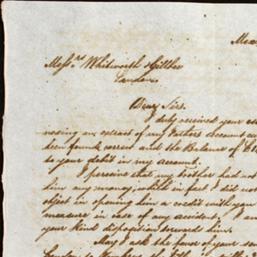 Mess.rs Whitworth Hillber
London
Dear Sirs.
I duly received your
nexing an extract of my Fathers account
been found correct and the Balance of
to your debit in my account.
I perceive that my brother had not
him any money; while in fact I did not
object in opening him a credit with you
measure in case of any accident. I am
your kind disposition towards him.
May I ask the favor of your
London to